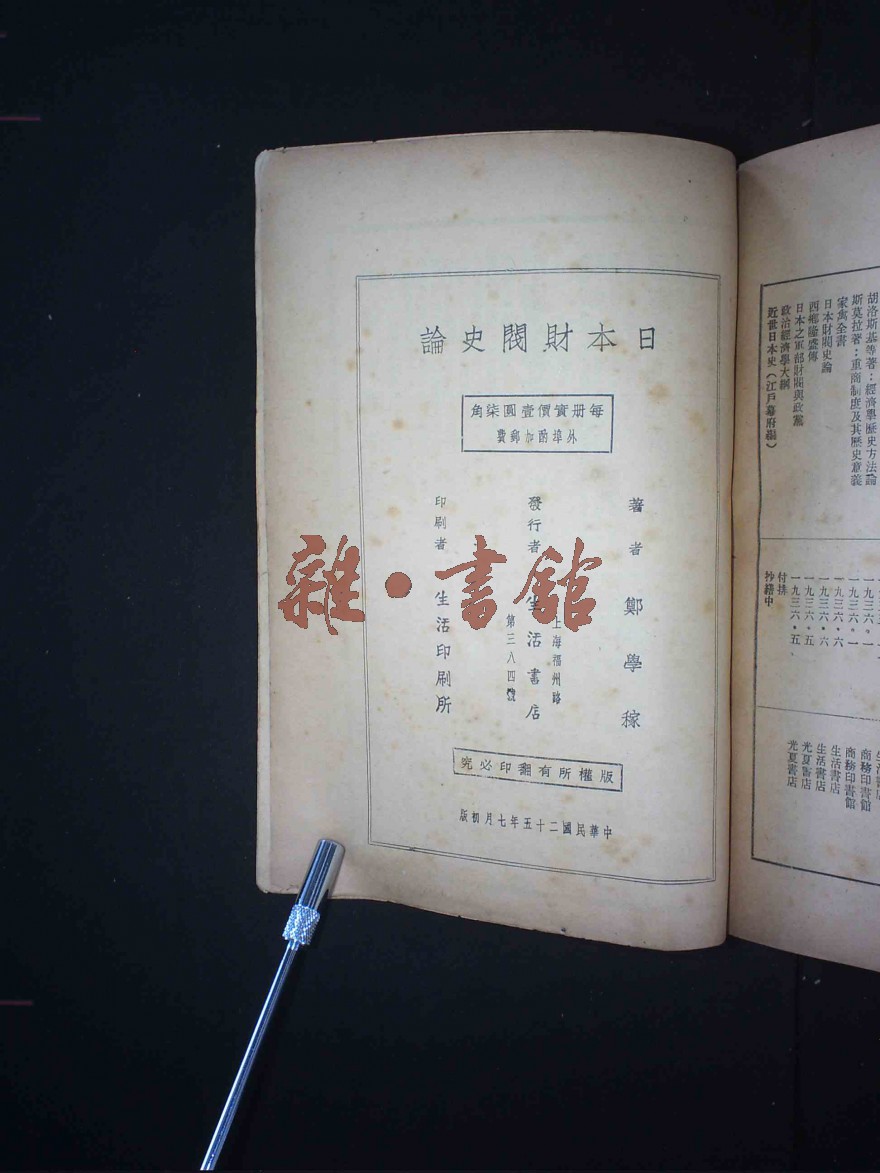 日本財閥史論
每册實價壹圓柒角
外埠酌加郵費
著者 鄭學稼
發行者 生活書店
上海福州路
第三八四號
印刷者 生活印刷所
版權所有翻印必究
中華民國二十五年七月初版
雜•書館
胡洛斯基等著：經濟學歷史方法論
斯莫拉著：重商制度及其歷史意義
家寓全書
日本財閥史論
西鄉隆盛傳
日本之軍部財閥與政黨
政治經濟學大綱
近世日本史（江戶幕府篇）
一九三六・一
一九三六・六
一九三六・六
一九三六・五
付排
抄繕中
生活書店
商務印書館
商務印書館
生活書店
生活書店
光夏書店
光夏書店